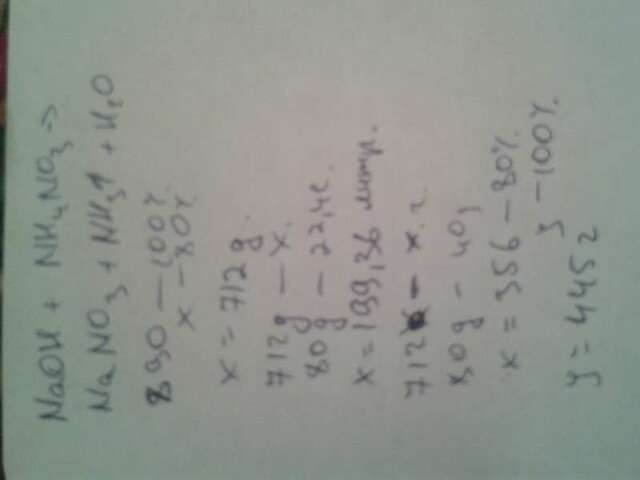 NaOH + NH₄NO₃ →
NaNO₃ + NH₃↑ + H₂O
890 — 100%
x — 80%
x = 712 g.
712g — x.
80g — 22,4l.
x = 199,36 литр.
712 — x. г.
80g — 40g
x = 356 — 80%.
y — 100%.
y = 445 г